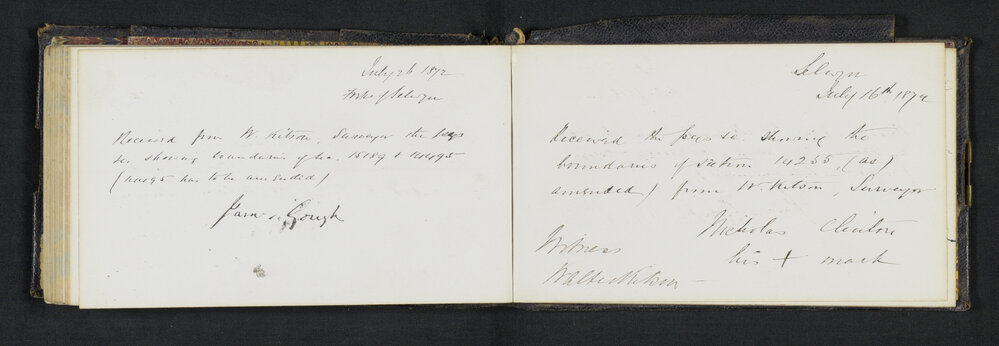 July 26 1872
Forks of Selwyn
Received from W. Kitson, Surveyor the pegs
&c showing boundaries of sec. 15189 & 14495
(14495 has to be amended)
James Gough
Selwyn
July 16th 1872
Received the pegs &c showing the
boundaries of section 14255 (as)
amended) from W. Kitson, Surveyor
Nicholas Clinton
his + mark
Witness
Walter Kitson